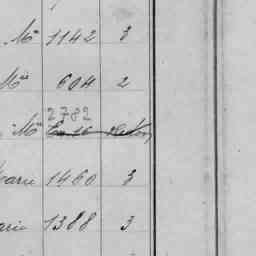 Mⁿ 1142 3
Mⁿ 604 2
2782
Mⁿ
arie 1460 3
arie 1388 3